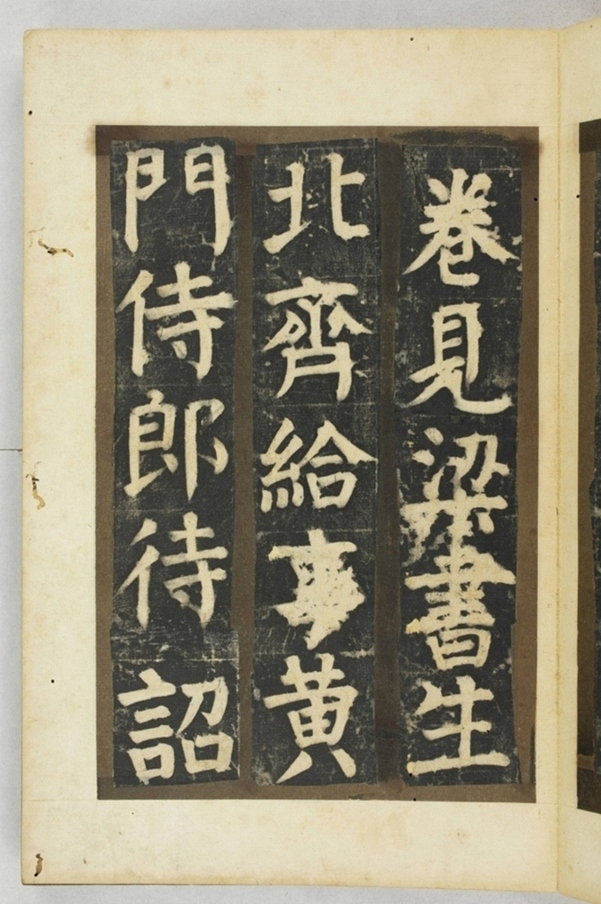 卷見梁書生
北齊給事黃
門侍郎待詔